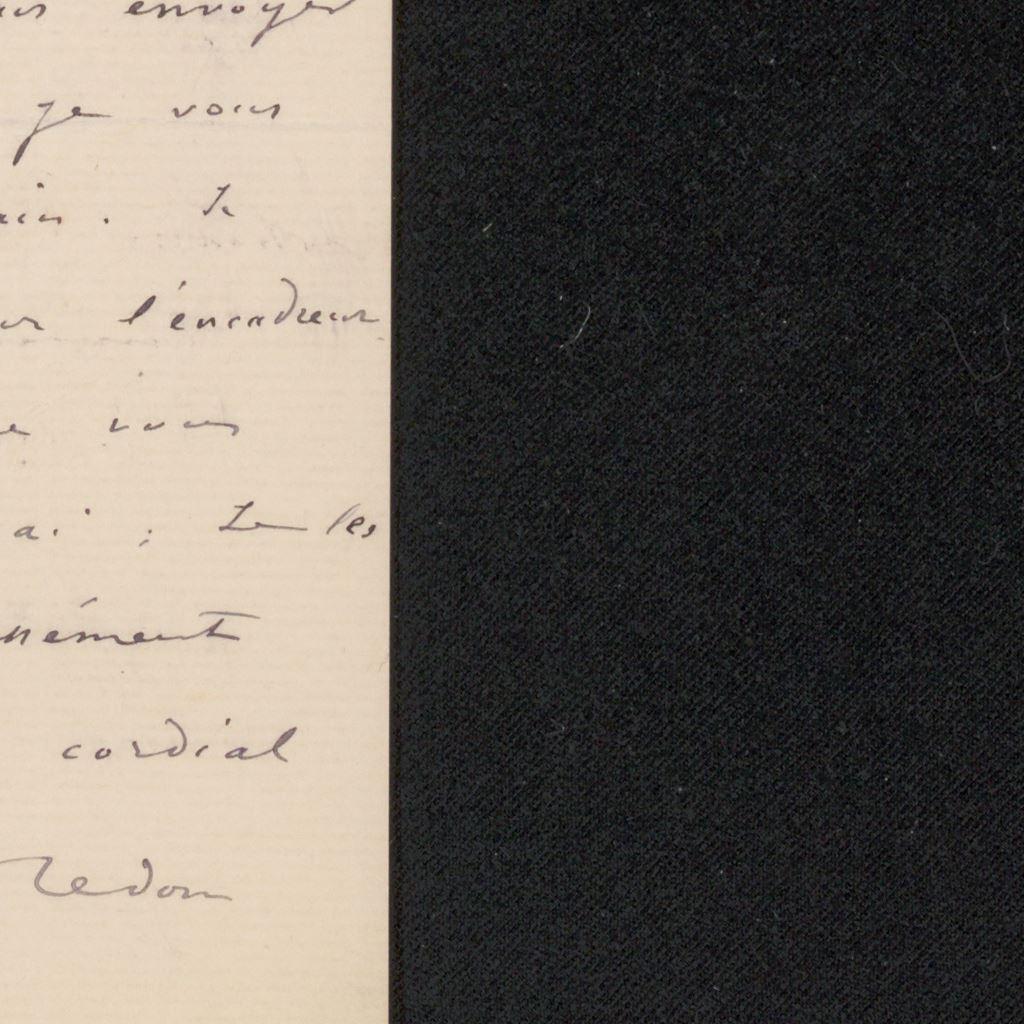 envoyer
je vous
. Je
l'encadreur
vous
ai ; Je les
nément
cordial
Redon